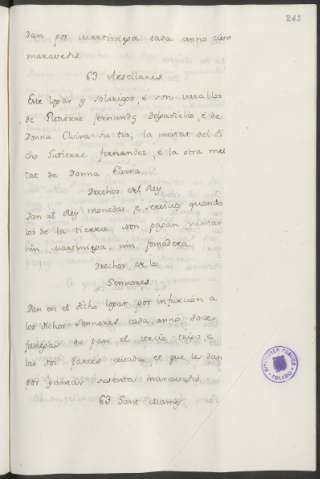 243
Dan por martiniega cada anno cien
maravedis.
63 Arcellares
Este logar es solariego, e son vasallos
de Gutierre fernandez de padiella, e de
Donna Elvira su tia, la meitat del di
cho Gutierre fernandez, e la otra mei
tat de Donna Elvira.
Derechos del Rey
Dan al Rey monedas, e servicios quando
los de la tierra, non pagan martiniega
nin fonsadera.
Derechos de los
Sennores
Dan en el dicho logar por infurcion a
los dichos sennores cada anno doce
fanegas de pan el tercio trigo e
las dos partes cevada, e que le dan
por sesenta maravedis.
63 Sant
TOLEDO